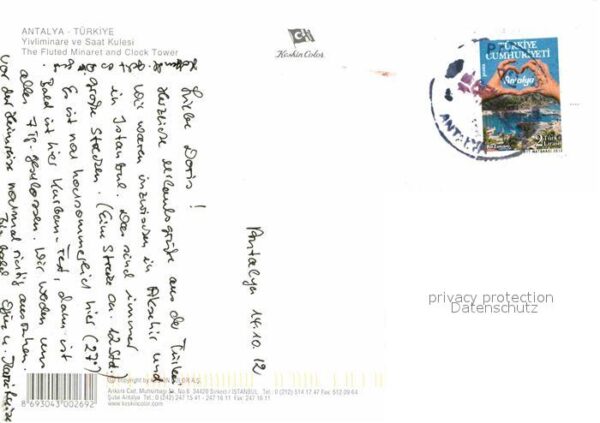 ANTALYA - TÜRKİYE
Yivliminare ve Saat Kulesi
The Fluted Minaret and Clock Tower
Keskin Color
TÜRKİYE
CUMHURİYETİ
Antalya
ANTALYA
Antalya 14.10.12
Liebe Doris!
Herzliche Urlaubsgrüße aus der Türkei.
Wir waren inzwischen in Akşehir und
in Istanbul. Das sind immer
große Strecken. (Eine Strecke ca. 12 Std.)
Es ist noch hochsommerlich hier (27°)
Bald ist hier Kurban-Fest, dann ist
alles 7 Tg. geschlossen. Wir werden uns
vor der Heimreise nochmal richtig ausruhen.
Bis bald
privacy protection
Datenschutz
8 693043 002692
© copyright by KESKİN COLOR A.Ş.
Ankara Cad. No. 34420 Sirkeci / İSTANBUL Tel.: 0 (212) 514 17 47 Fax: 512 09 64
Şube Antalya Tel.: 0 (242) 247 15 41 - 247 16 11 Fax: 247 16 11
www.keskincolor.com